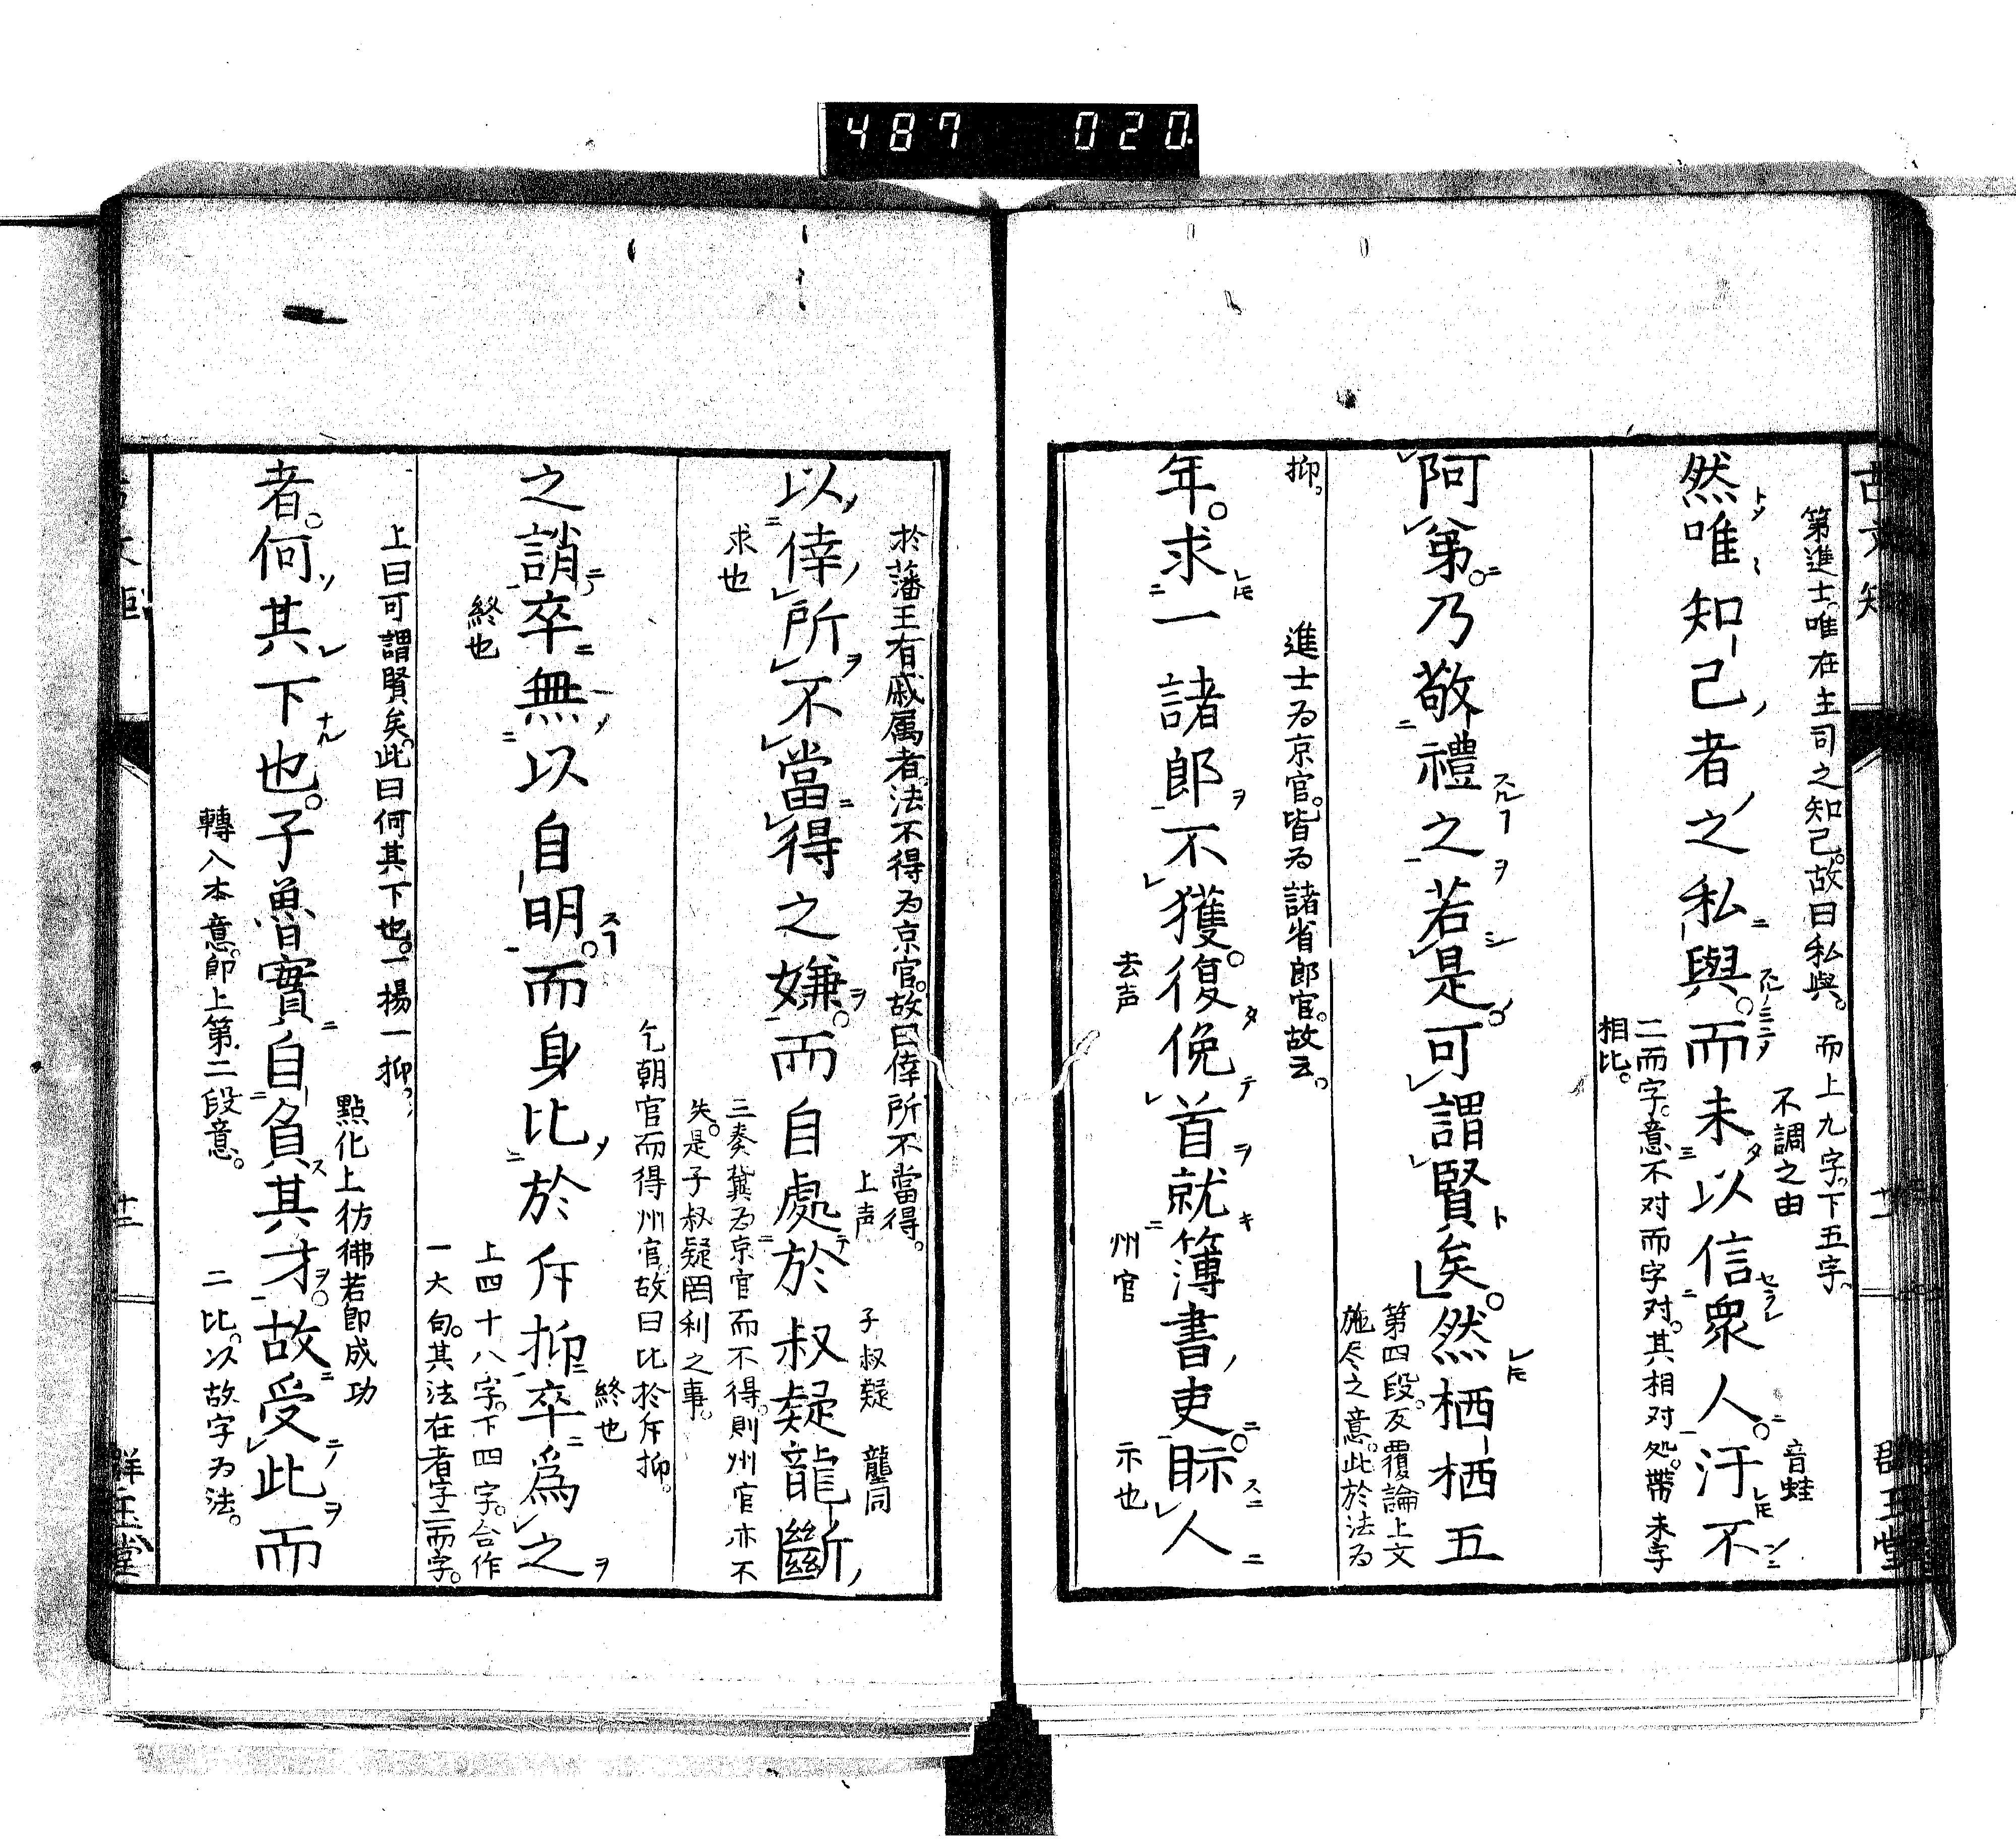 487 020
第進士。唯在主司之知己。故曰私與。 而上九字。下五字。
不調之由
然唯知己者之私與。而未以信衆人。汙不
音蛙
二而字。意不对而字对。其相对処。帶未字
相比。
阿第。乃敬禮之若是。可謂賢矣。然栖栖五
第四段。反覆論上文
施尽之意。此於法为
抑。
進士为京官。皆为諸省郎官。故云。
年。求一諸郎不獲。復俛首就簿書吏。眎人
去声
州官
示也
於藩王有戚属者。法不得为京官。故曰倖所不當得。
上声
子叔疑
龍同
以倖所不當得之嫌。而自處於叔疑龍斷
求也
三奏冀为京官而不得。則州官亦不
失。是子叔疑罔利之事。
乞朝官而得州官。故曰比於斥抑。
終也
之誚。卒無以自明。而身比於斥抑卒爲之
終也
上四十八字。下四字。合作
一大句。其法在者字二而字。
上曰可謂賢矣。此曰何其下也。一揚一抑。
點化上彷彿若即成功
者。何其下也。子魯實自負其才。故受此而
轉入本意。即上第二段意。
二比。以故字为法。